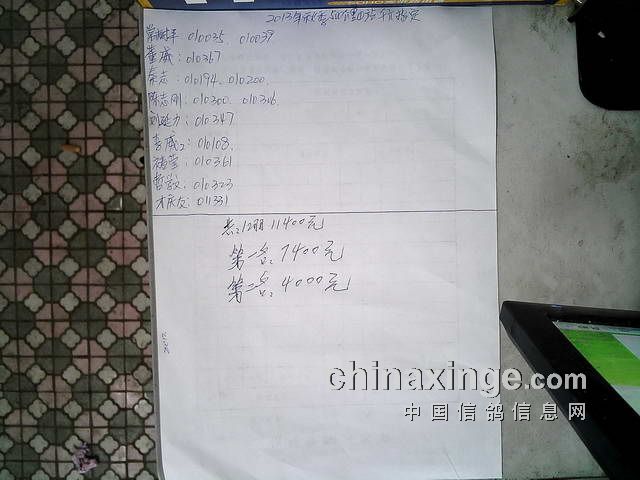 2013年秋季500公里
010035、010039
董威:010367
秦志:010194、010200
陈志刚:010300、010346
刘延力:010347
:010108
:010361
哲毅:010323
才庆友:011331
共:12羽 11400元
第一名:7400元
第二名:4000元
chinaxinge.com
中国信鸽信息网